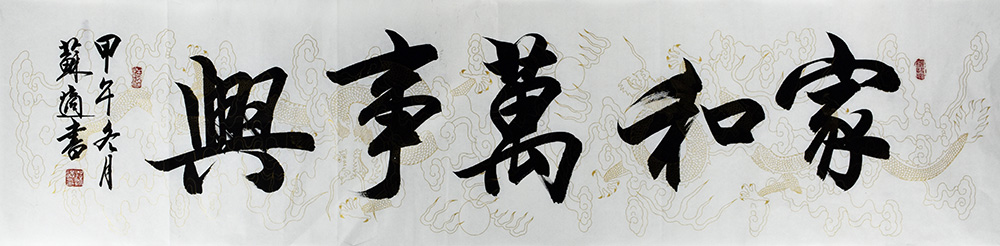 家和萬事興
甲午冬月
蘇適書